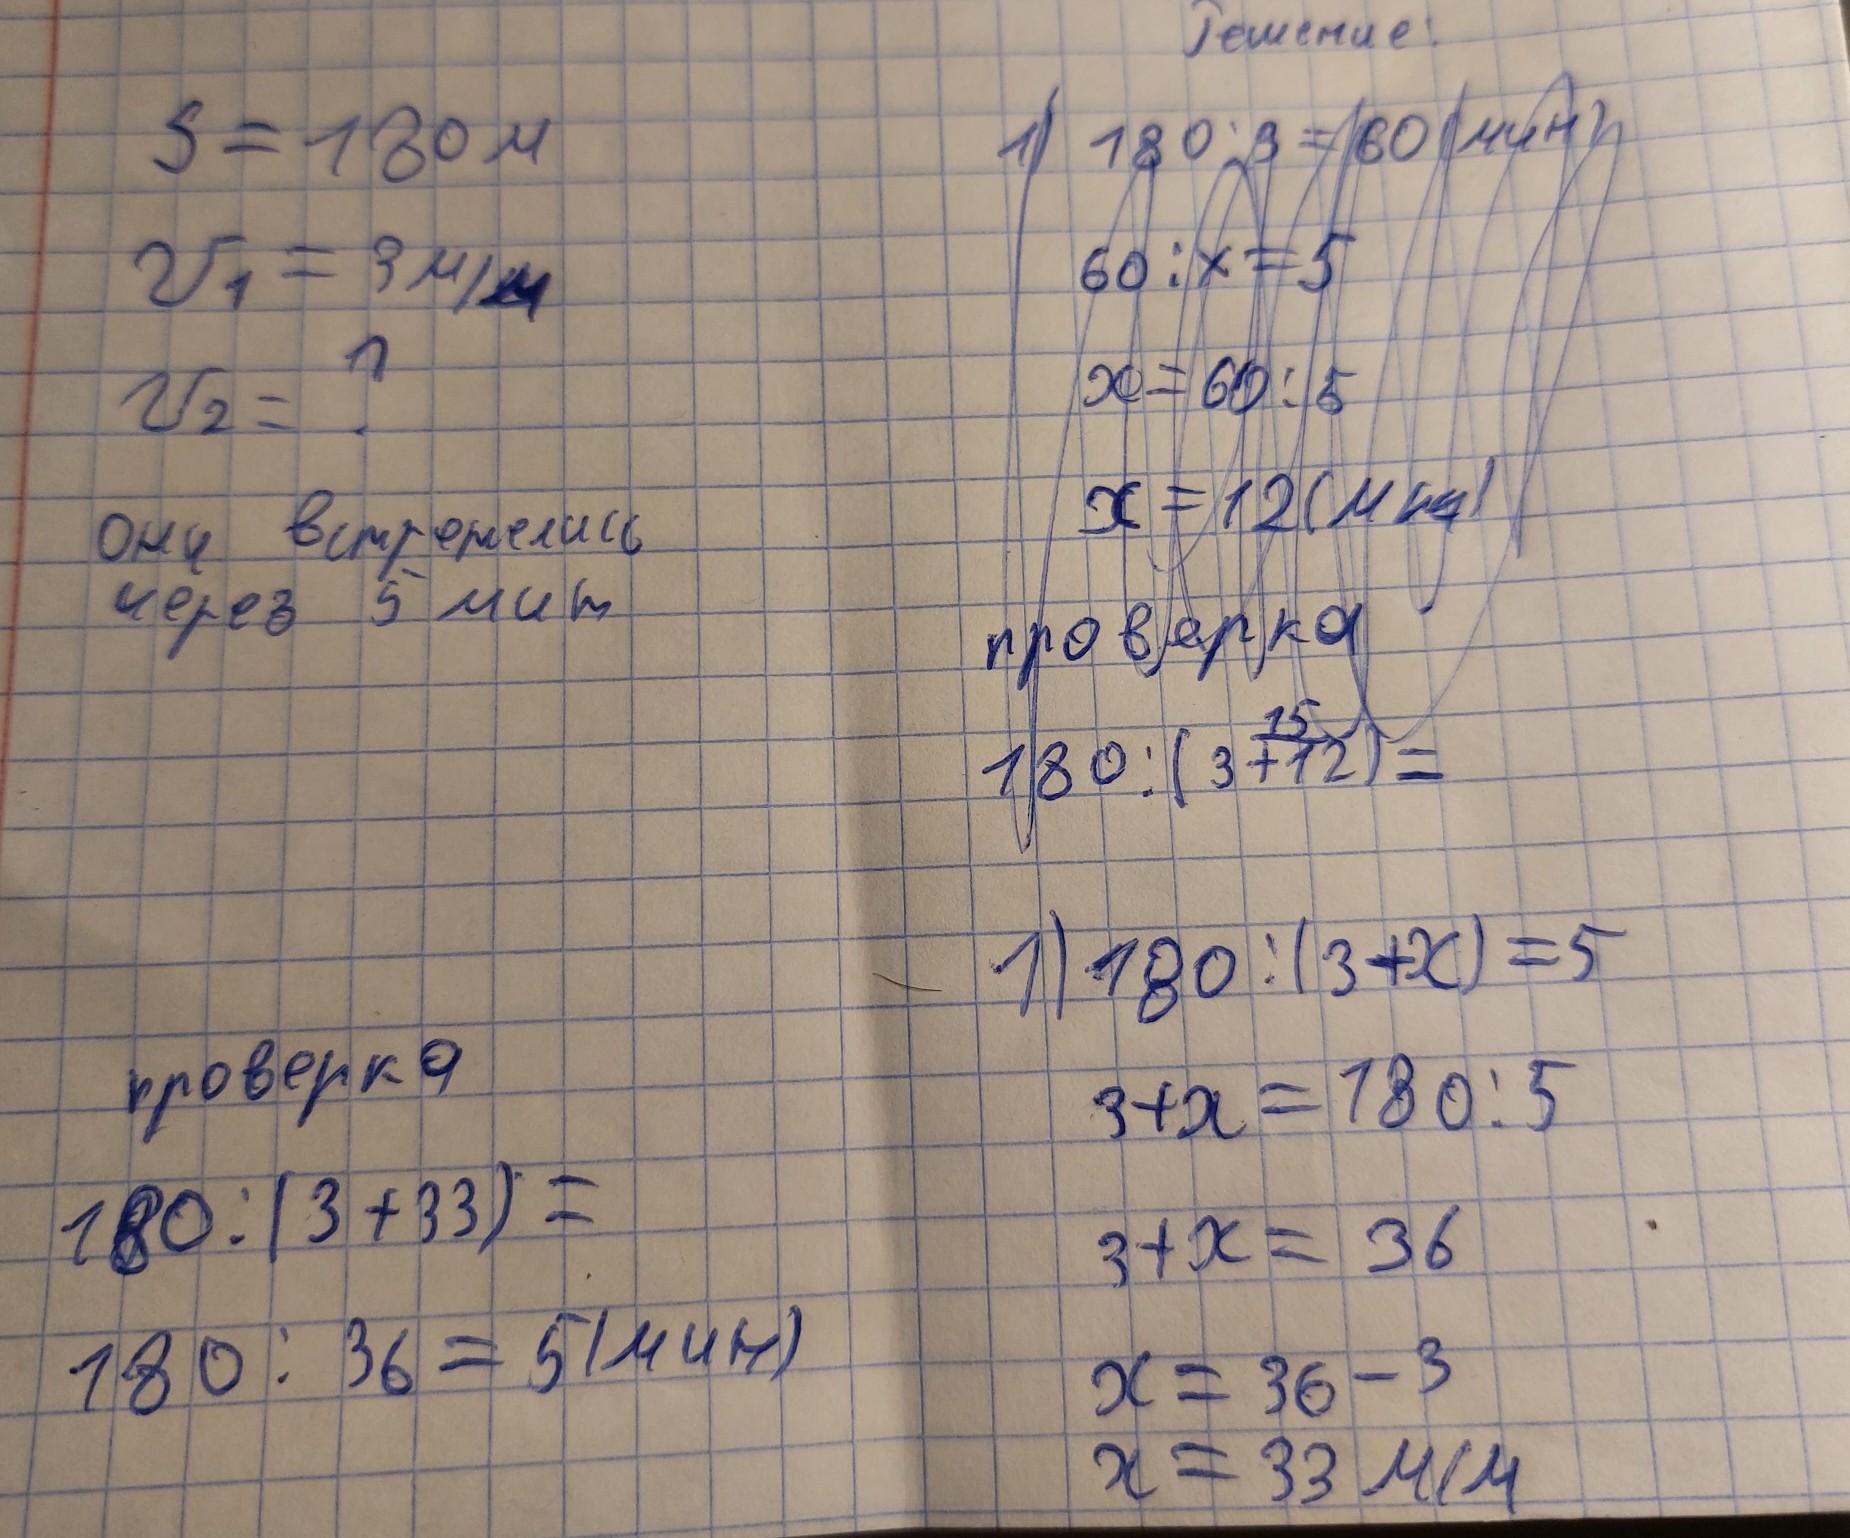 Решение:
S = 180 м
V1 = 3 м/м
V2 = ?
они встретились
через 5 мин
1) 180 : 3 = 60 (мин)
60 : x = 5
x = 60 : 5
x = 12 (мин)
проверка
15
180 : (3 + 12) =
1) 180 : (3 + x) = 5
3 + x = 180 : 5
3 + x = 36
x = 36 - 3
x = 33 м/м
проверка
180 : (3 + 33) =
180 : 36 = 5 (мин)